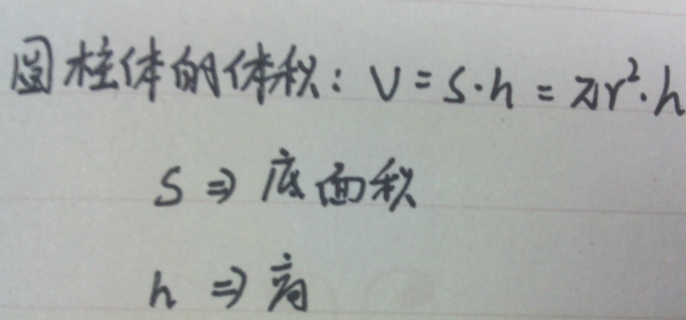 圆柱体的体积：V = S·h = πr²·h
S ⇒ 底面积
h ⇒ 高